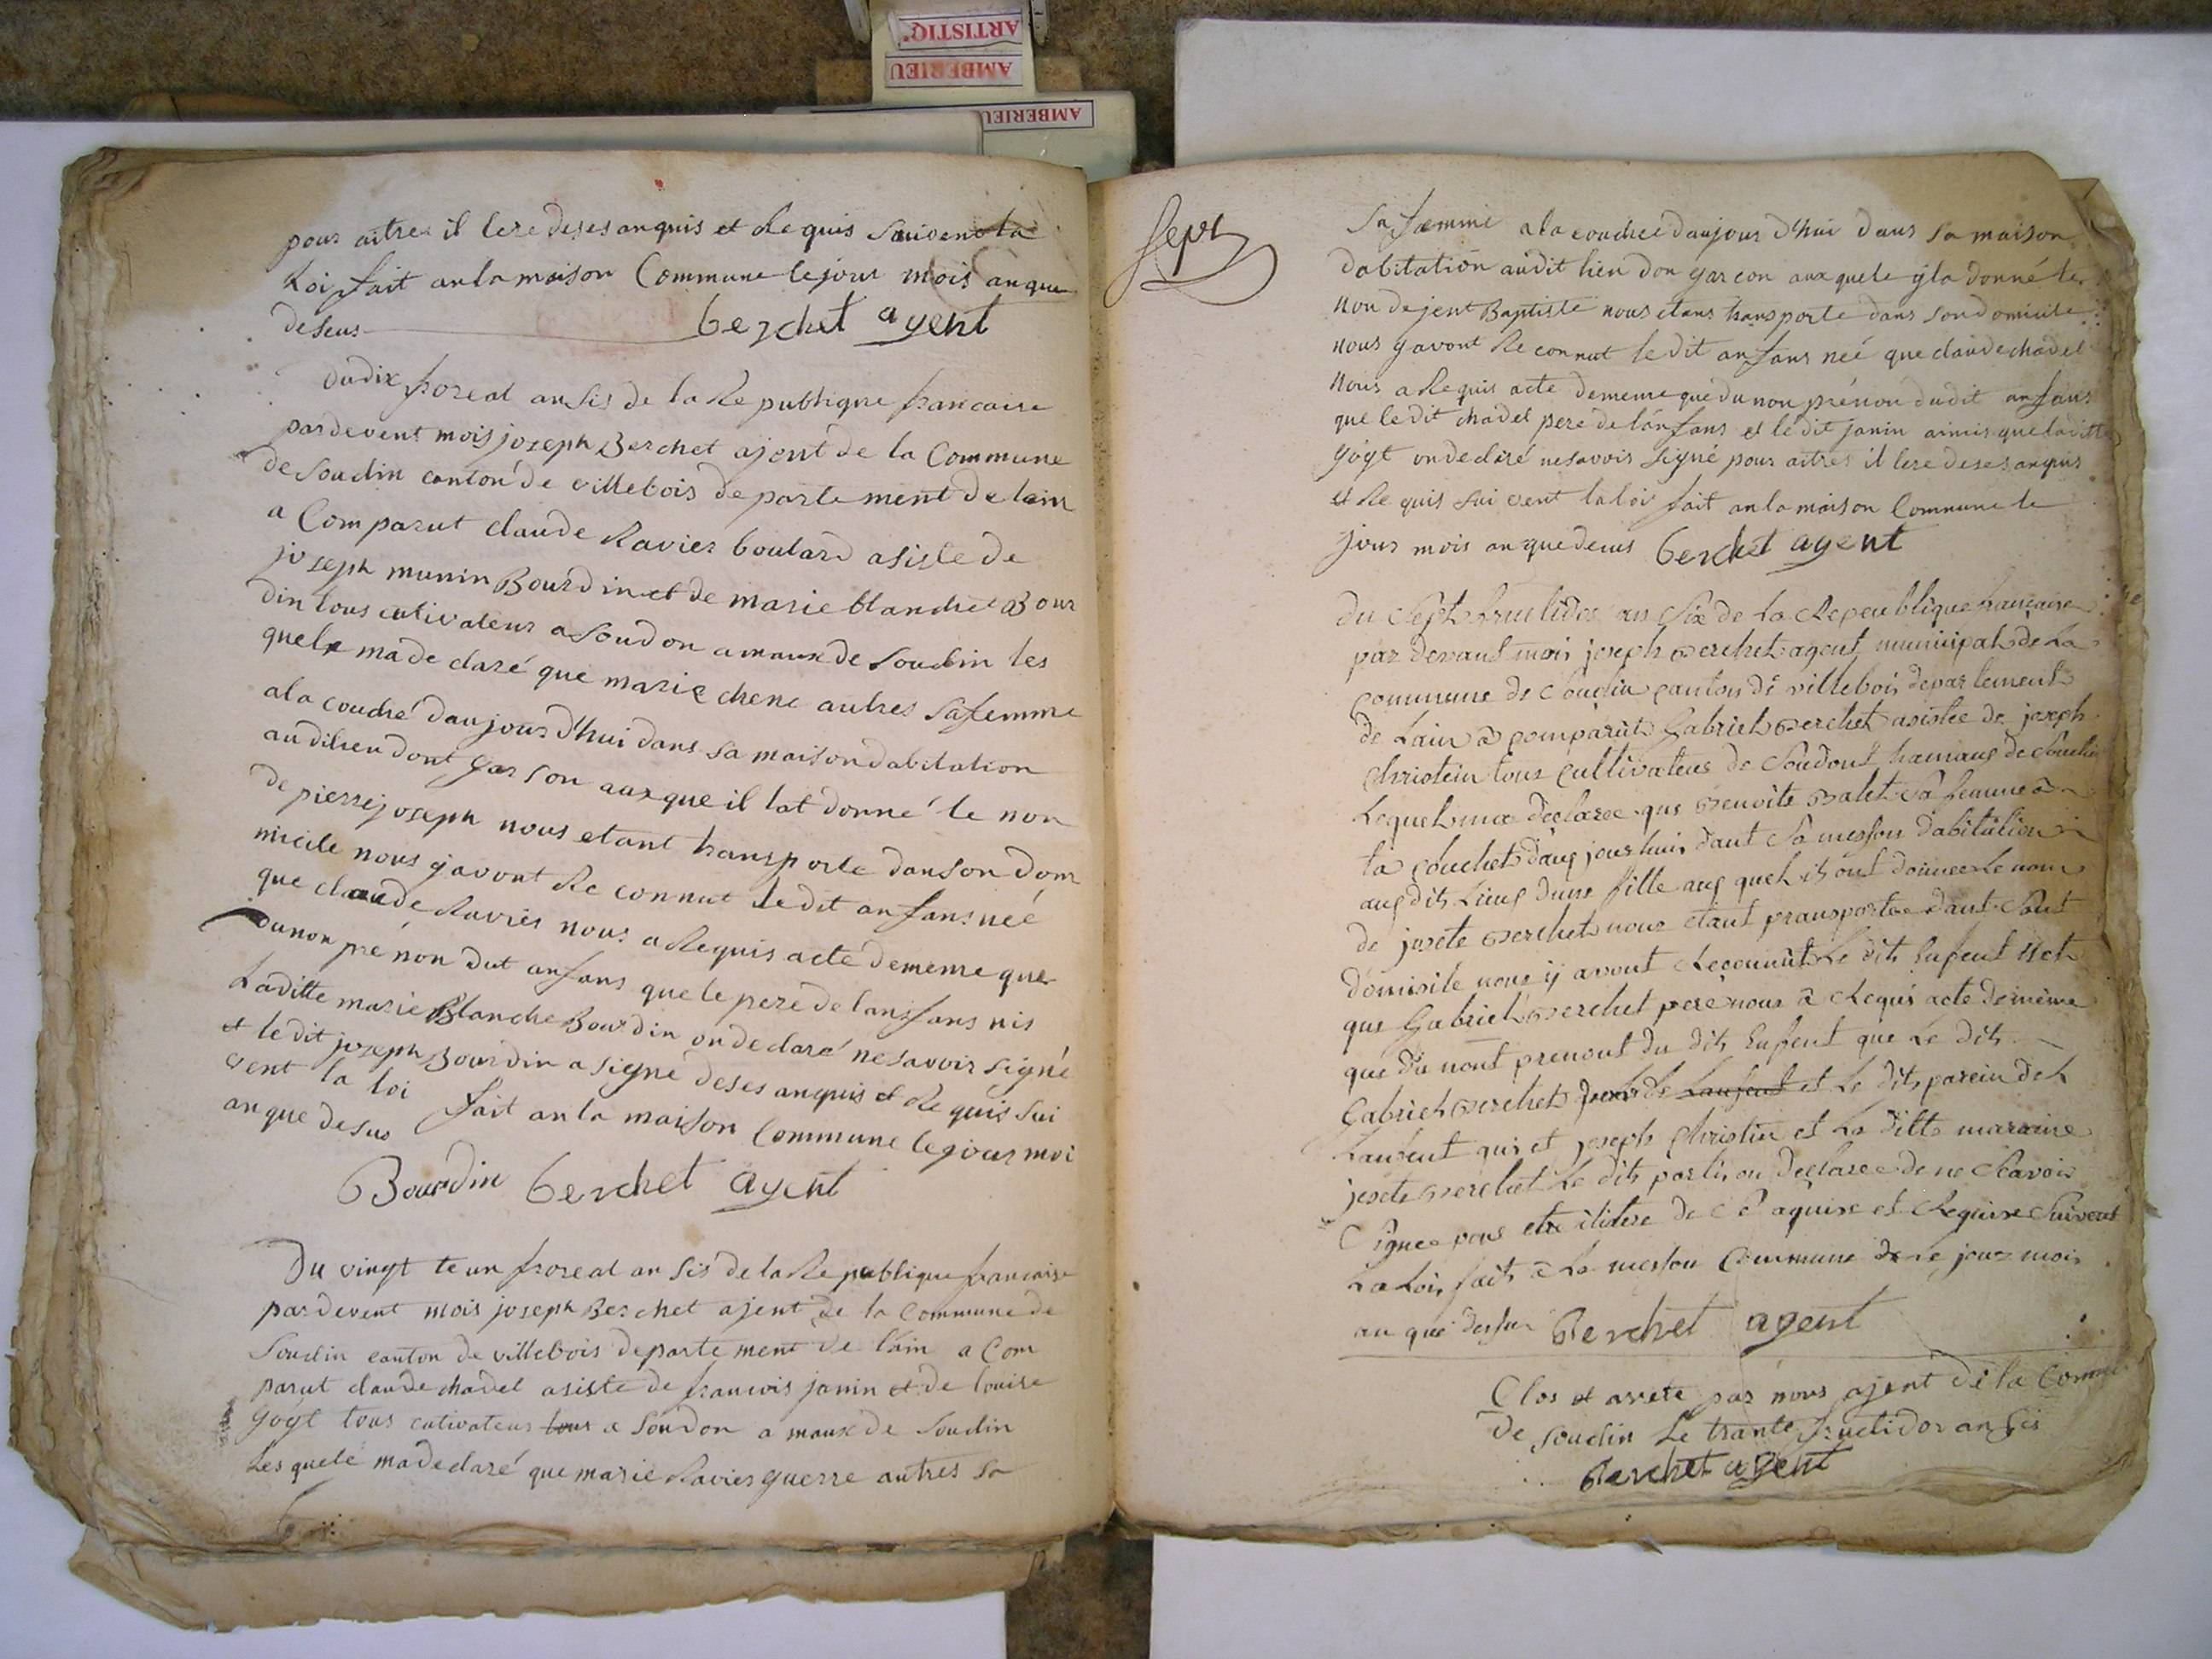 ARTISTIQ.
AMBERIEU
AMBERIEU
pour aitres il lere deses anquis et Requis Suivent la
Loi fait an la maison Commune le jour mois an que
deseus Berchet agent
du dix froreal an sis de la Republique francaise
par devent mois joseph Berchet ajent de la Commune
de Soudin canton de villebois departement de lain
a Comparut claude Ravier boulard asiste de
joseph munin Bourdin et de marie blanche Bour
din tous cutivateur a Soudon amaux de Soudin les
quele ma declaré que marie chene autres Safemme
a la couché daujours d'hui dans sa maison dabitation
audilieu dont garson auxque il lat donné le non
de pierre joseph nous etant transporte dan son dom
nicile nous y avont Reconnut le dit anfans neé
que claude Ravier nous a Requis acte de meme que
du non pré non dut anfans que le pere de lanfans nis
Laditte marie Blanche Bourdin on declaré ne savoir signé
et ledit joseph Bourdin a signé deses anquis et Requis Sui
vent la loi fait an la maison Commune le jour moi
an que desus
Bourdin Berchet agent
Du vingt te un froreal an Sis de la Republique francaise
par devent mois joseph Berchet ajent de la Commune de
Soudin canton de villebois departement de lain a Com
parut claude chadel asiste de francois janin et de louise
goÿt tous cutivateur tous a Soudon a maux de Soudin
Les quele ma declaré que marie Ravier guerre autres Sa
Sept
Sa femme a la couchee daujours d'hui dans sa maison
dabitation audit lieu don garcon aux quele y la donné le
non de jent Baptiste nous etans transporte dans son domicile
nous y avont Reconnut le dit anfans neé que claude chadel
nous a Requis acte de meme que du non prénon dudit anfans
que le dit chadel pere de lanfans et le dit janin aimis que laditte
goÿt on declaré ne savois signé pour aitres il lere deses anquis
et Requis suivent la loi fait an la maison Commune le
jour mois an que deus Berchet agent
du Sept fructidor an Six de la Republique française
par devant moi joseph Berchet agent municipal de La
commune de Soudin canton de villebois departement
de Lain a comparut Gabriel Berchet asistée de joseph
Christein tous cultivateur de Soudont hamaux de Soudin
Lequel ma declaree que Benoite Balet Sa femme a
la Couchet daux jourhuis dant Sa meson dabitation
aux dit Lieux dune fille aux quel ils ont donnee Le nom
de josete Berchet nous etant transportee dant Sont
domisile nous y avont Reconnut Le dit Enfent Net
que Gabriel Berchet pere nous a Requis acte de même
que du nont prenont du dit Enfent que Le dit
Gabriel Berchet pere de Lanfent et Le dit parein de L
Lanfent qui et joseph Christin et La ditte maraine
josete Berchet Le dit parti on declaree de ne Savoir
Signee pour etre ilitere de Ce aquise et Requise Suivent
La Loi fait a La meson Commune de Le jour mois
an que dessu Berchet agent
Clos et arreté par nous ajent de la Commu
de Soudin Le trante fructidor an Sis
Berchet agent